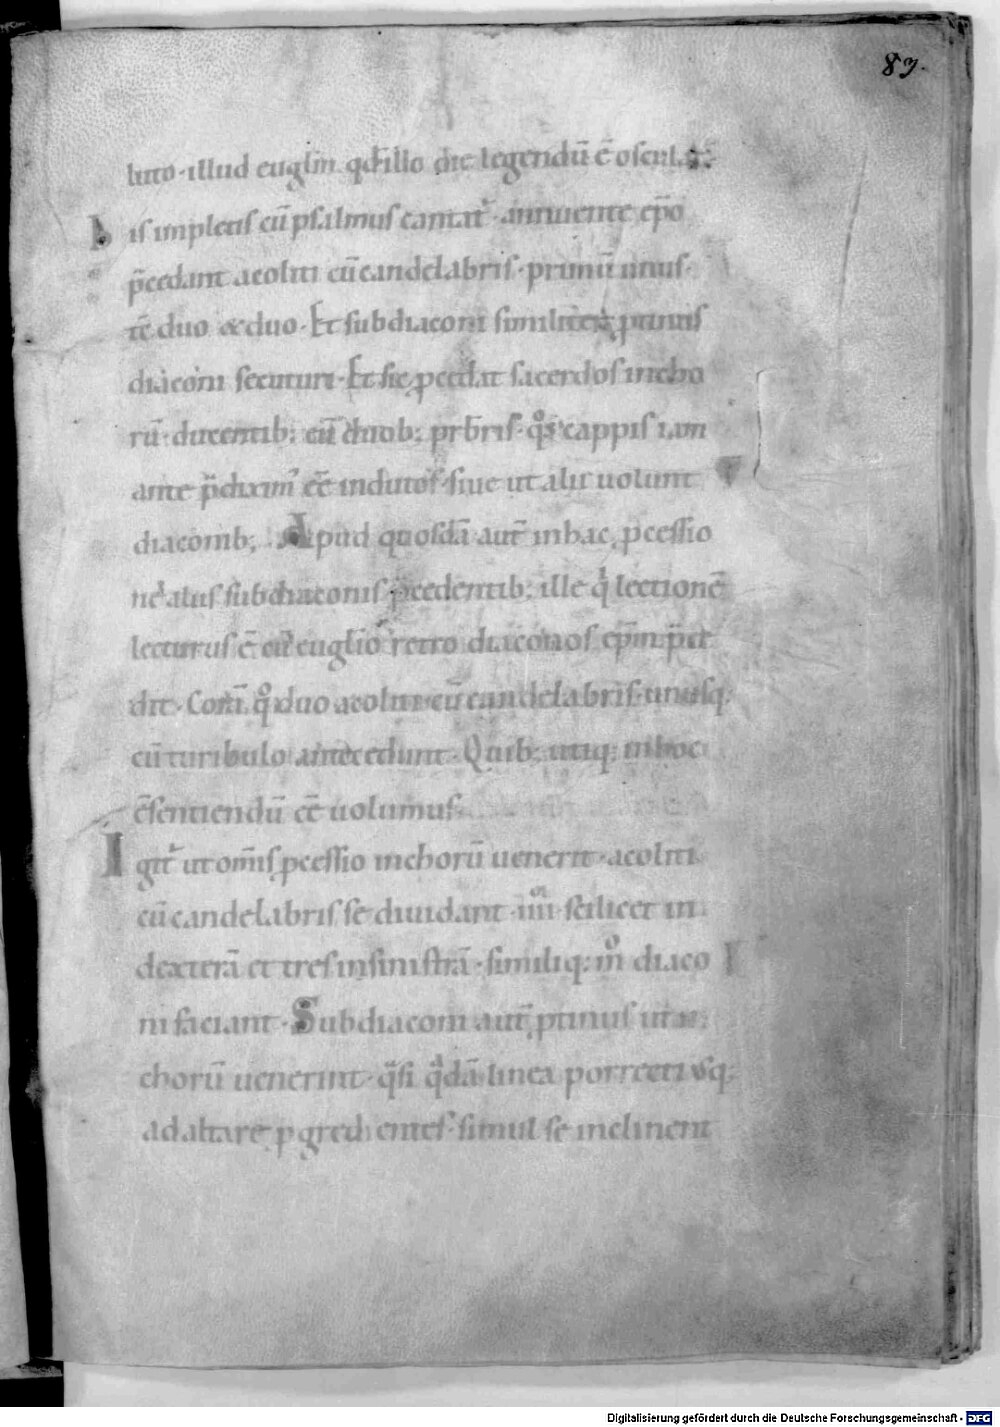 83.
luto · illud euglm̄ qd̄ illo die legendū ē osculat᷑
his impletis cū psalmus cantat᷑ · annuente ep̄o
p̄cedant acoliti cū candelabris · primū unus ·
t̄c duo & duo · Et subdiaconi similit᷑ ptinus
diaconi secuturi · Et sic pcedat sacerdos in cho
rū · ducentib; cū duob; prb̄ris · qͦs cappis iam
ante p̄dixim᷒ eē indutos · siue ut alii uolunt
diaconib; Apud quosdā aut̄ in hac pcessio
ne alus subdiaconis p̄cedentib; ille q̇ lectionē
lecturus ē cū euglio retro diaconos ep̄m p̄ce
dit · Corā qͦ duo acoliti cū candelabris · unusq;
cū turibulo antecedunt · Quib; utiq; in hoc
c̄sentiendū eē uolumus ·
Igit᷑ ut om̄is pcessio in chorū uenerit · acoliti
cū candelabris se diuidant · iiii scilicet in
dexterā et tres in sinistrā · similiq; mͦ diaco
ni faciant · Subdiaconi aut̄ ptinus ut in
chorū uenerint · qͣsi qͣdā linea porrecti usq;
ad altare pgredientes · simul se inclinent
Digitalisierung gefördert durch die Deutsche Forschungsgemeinschaft - DFG